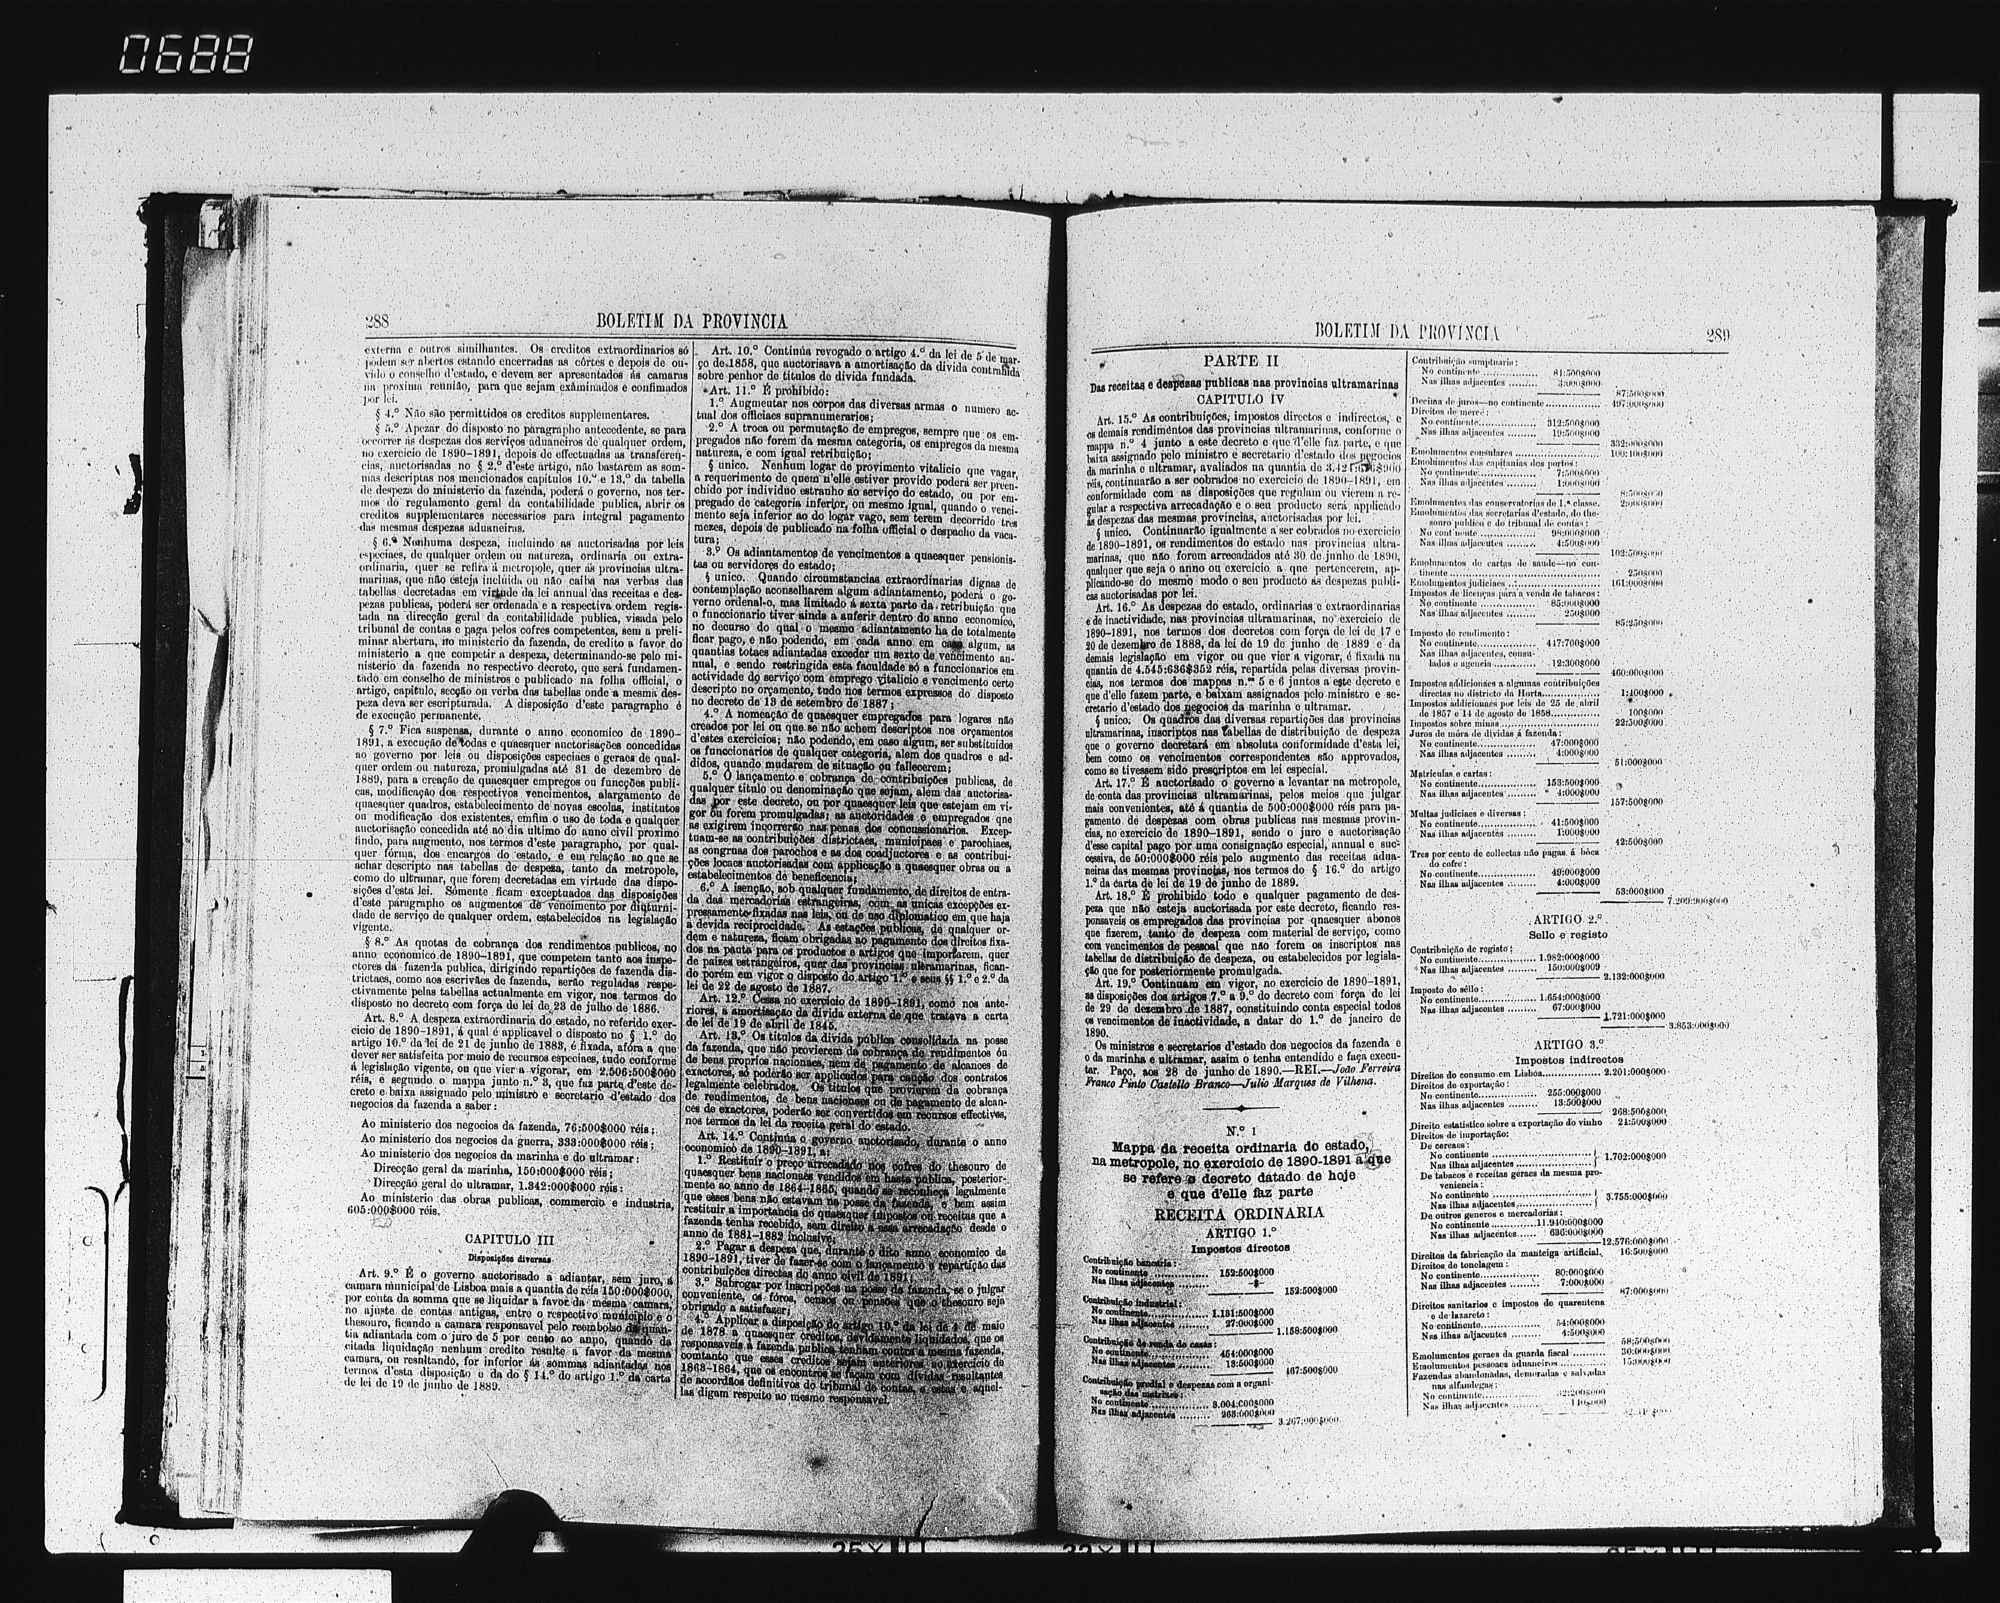 0688
288
BOLETIM DA PROVINCIA
externa e outros similhantes. Os creditos extraordinarios só
podem ser abertos estando encerradas as côrtes e depois de ou-
vido o conselho d'estado, e devem ser apresentados ás camaras
na proxima reunião, para que sejam examinados e confimados
por lei.
§ 4.º Não são permittidos os creditos supplementares.
§ 5.º Apezar do disposto no paragrapho antecedente, se para
occorrer ás despezas dos serviços aduaneiros de qualquer ordem,
no exercicio de 1890-1891, depois de effectuadas as transferen-
cias, auctorisadas no § 2.º d'este artigo, não bastarem as som-
mas descriptas nos mencionados capitulos 10.º e 13.º da tabella
de despeza do ministerio da fazenda, poderá o governo, nos ter-
mos do regulamento geral da contabilidade publica, abrir os
creditos supplementares necessarios para integral pagamento
das mesmas despezas aduaneiras.
§ 6.º Nenhuma despeza, incluindo as auctorisadas por leis
especiaes, de qualquer ordem ou natureza, ordinaria ou extra-
ordinaria, quer se refira á metropole, quer ás provincias ultra-
marinas, que não esteja incluida ou não caiba nas verbas das
tabellas decretadas em virtude da lei annual das receitas e des-
pezas publicas, poderá ser ordenada e a respectiva ordem regis-
tada na direcção geral da contabilidade publica, visada pelo
tribunal de contas e paga pelos cofres competentes, sem a preli-
minar abertura, no ministerio da fazenda, de credito a favor do
ministerio a que competir a despeza, determinando-se pelo mi-
nisterio da fazenda no respectivo decreto, que será fundamen-
tado em conselho de ministros e publicado na folha official, o
artigo, capitulo, secção ou verba das tabellas onde a mesma des-
peza deva ser escripturada. A disposição d'este paragrapho é
de execução permanente.
§ 7.º Fica suspensa, durante o anno economico de 1890-
1891, a execução de todas e quaesquer auctorisações concedidas
ao governo por leis ou disposições especiaes e geraes de qual-
quer ordem ou natureza, promulgadas até 31 de dezembro de
1889, para a creação de quaesquer empregos ou funcções publi-
cas, modificação dos respectivos vencimentos, alargamento de
quaesquer quadros, estabelecimento de novas escolas, institutos
ou modificação dos existentes, emfim o uso de toda e qualquer
auctorisação concedida até ao dia ultimo do anno civil proximo
findo, para augmento, nos termos d'este paragrapho, por qual-
quer fórma, dos encargos do estado, e em relação ao que se
achar descripto nas tabellas de despeza, tanto da metropole,
como do ultramar, que forem decretadas em virtude das dispo-
sições d'esta lei. Sómente ficam exceptuados das disposições
d'este paragrapho os augmentos de vencimento por diuturni-
dade de serviço de qualquer ordem, estabelecidos na legislação
vigente.
§ 8.º As quotas de cobrança dos rendimentos publicos, no
anno economico de 1890-1891, que competem tanto aos inspe-
ctores da fazenda publica, dirigindo repartições de fazenda dis-
trictaes, como aos escrivães de fazenda, serão reguladas respe-
ctivamente pelas tabellas actualmente em vigor, nos termos do
disposto no decreto com força de lei de 23 de julho de 1886.
Art. 8.º A despeza extraordinaria do estado, no referido exer-
cicio de 1890-1891, á qual é applicavel o disposto no § 1.º do
artigo 10.º da lei de 21 de junho de 1883, é fixada, afóra a que
dever ser satisfeita por meio de recursos especiaes, tudo conforme
á legislação vigente, ou que vier a vigorar, em 2.506:500$000
réis, e segundo o mappa junto n.º 3, que faz parte d'este de-
creto e baixa assignado pelo ministro e secretario d'estado dos
negocios da fazenda a saber:
Ao ministerio dos negocios da fazenda, 76:500$000 réis;
Ao ministerio dos negocios da guerra, 333:000$000 réis;
Ao ministerio dos negocios da marinha e do ultramar:
Direcção geral da marinha, 150:000$000 réis;
Direcção geral do ultramar, 1.342:000$000 réis:
Ao ministerio das obras publicas, commercio e industria,
605:000$000 réis.
CAPITULO III
Disposições diversas
Art. 9.º É o governo auctorisado a adiantar, sem juro, á
camara municipal de Lisboa mais a quantia de réis 150:000$000,
por conta da somma que se liquidar a favor da mesma camara,
no ajuste de contas antigas, entre o respectivo municipio e o
thesouro, ficando a camara responsavel pelo reembolso da quan-
tia adiantada com o juro de 5 por cento ao anno, quando da
citada liquidação nenhum credito resulte a favor da mesma
camara, ou resultando, for inferior ás sommas adiantadas nos
termos d'esta disposição e da do § 14.º do artigo 1.º da carta
de lei de 19 de junho de 1889.
Art. 10.º Continúa revogado o artigo 4.º da lei de 5 de mar-
ço de 1858, que auctorisava a amortisação da divida contrahida
sobre penhor de titulos de divida fundada.
Art. 11.º É prohibido:
1.º Augmentar nos corpos das diversas armas o numero ac-
tual dos officiaes supranumerarios;
2.º A troca ou permutação de empregos, sempre que os em-
pregados não forem da mesma categoria, os empregos da mesma
natureza, e com igual retribuição;
§ unico. Nenhum logar de provimento vitalicio que vagar,
a requerimento de quem n'elle estiver provido poderá ser preen-
chido por individuo estranho ao serviço do estado, ou por em-
pregado de categoria inferior, ou mesmo igual, quando o venci-
mento seja inferior ao do logar vago, sem terem decorrido tres
mezes, depois de publicado na folha official o despacho da vaca-
tura;
3.º Os adiantamentos de vencimentos a quaesquer pensionis-
tas ou servidores do estado;
§ unico. Quando circumstancias extraordinarias dignas de
contemplação aconselharem algum adiantamento, poderá o go-
verno ordenal-o, mas limitado á sexta parte da retribuição que
o funccionario tiver ainda a auferir dentro do anno economico,
no decurso do qual o mesmo adiantamento ha de totalmente
ficar pago, e não podendo, em cada anno em caso algum, as
quantias totaes adiantadas exceder um sexto de vencimento an-
nual, e sendo restringida esta faculdade só a funccionarios em
actividade do serviço com emprego vitalicio e vencimento certo
descripto no orçamento, tudo nos termos expressos do disposto
no decreto de 13 de setembro de 1887;
4.º A nomeação de quaesquer empregados para logares não
creados por lei ou que se não achem descriptos nos orçamentos
d'estes exercicios; não podendo, em caso algum, ser substituidos
os funccionarios de qualquer categoria, alem dos quadros e ad-
didos, quando mudarem de situação ou fallecerem;
5.º O lançamento e cobrança de contribuições publicas, de
qualquer titulo ou denominação que sejam, alem das auctorisa-
das por este decreto, ou por quaesquer leis que estejam em vi-
gor ou forem promulgadas; as auctoridades e empregados que
as exigirem incorrerão nas penas dos concussionarios. Excep-
tuam-se as contribuições districtaes, municipaes e parochiaes,
as congruas dos parochos e as dos coadjuctores e as contribui-
ções locaes auctorisadas com applicação a quaesquer obras ou a
estabelecimentos de beneficencia;
6.º A isenção, sob qualquer fundamento, de direitos de entra-
da das mercadorias estrangeiras, com as unicas excepções ex-
pressamente fixadas nas leis, ou de uso diplomatico em que haja
a devida reciprocidade. As estações publicas, de qualquer or-
dem e natureza, ficam obrigadas ao pagamento dos direitos fixa-
dos na pauta para os productos e artigos que importarem, quer
de paizes estrangeiros, quer das provincias ultramarinas, fican-
do porém em vigor o disposto do artigo 1.º e seus §§ 1.º e 2.º da
lei de 22 de agosto de 1887.
Art. 12.º Cessa no exercicio de 1890-1891, como nos ante-
riores, a amortisação da divida externa de que tratava a carta
de lei de 19 de abril de 1845.
Art. 13.º Os titulos da divida publica consolidada na posse
da fazenda, que não provierem da cobrança de rendimentos ou
de bens proprios nacionaes, nem de pagamento de alcances de
exactores, só poderão ser applicados para caução dos contratos
legalmente celebrados. Os titulos que provierem da cobrança
de rendimentos, de bens nacionaes ou de pagamento de alcan-
ces de exactores, poderão ser convertidos em recursos effectivos,
nos termos da lei da receita geral do estado.
Art. 14.º Continúa o governo auctorisado, durante o anno
economico de 1890-1891, a:
1.º Restituir o preço arrecadado nos cofres do thesouro de
quaesquer bens nacionaes vendidos em hasta publica, posterior-
mente ao anno de 1864-1865, quando se reconheça legalmente
que esses bens não estavam na posse da fazenda, e bem assim
restituir a importancia de quaesquer impostos ou receitas que a
fazenda tenha recebido, sem direito a essa arrecadação desde o
anno de 1881-1882 inclusivé;
2.º Pagar a despeza que, durante o dito anno economico de
1890-1891, tiver de fazer-se com o lançamento e repartição das
contribuições directas do anno civil de 1891;
3.º Subrogar por inscripções na posse da fazenda, se o julgar
conveniente, os fóros, censos ou pensões que o thesouro seja
obrigado a satisfazer;
4.º Applicar a disposição do artigo 10.º da lei de 4 de maio
de 1878 a quaesquer creditos, devidamente liquidados, que os
responsaveis á fazenda publica tenham contra a mesma fazenda,
comtanto que esses creditos sejam anteriores ao exercicio de
1863-1864, que os encontros se façam com dividas resultantes
de accordãos definitivos do tribunal de contas, e estas e aquel-
las digam respeito ao mesmo responsavel.
BOLETIM DA PROVINCIA
289
PARTE II
Das receitas e despezas publicas nas provincias ultramarinas
CAPITULO IV
Art. 15.º As contribuições, impostos directos e indirectos, e
os demais rendimentos das provincias ultramarinas, conforme o
mappa n.º 4 junto a este decreto e que d'elle faz parte, e que
baixa assignado pelo ministro e secretario d'estado dos negocios
da marinha e ultramar, avaliados na quantia de
réis, continuarão a ser cobrados no exercicio de 1890-1891, em
conformidade com as disposições que regulam ou vierem a re-
gular a respectiva arrecadação e o seu producto será applicado
ás despezas das mesmas provincias, auctorisadas por lei.
§ unico. Continuarão igualmente a ser cobrados no exercicio
de 1890-1891, os rendimentos do estado nas provincias ultra-
marinas, que não forem arrecadados até 30 de junho de 1890,
qualquer que seja o anno ou exercicio a que pertencerem, ap-
plicando-se do mesmo modo o seu producto ás despezas publi-
cas auctorisadas por lei.
Art. 16.º As despezas do estado, ordinarias e extraordinarias
e de inactividade, nas provincias ultramarinas, no exercicio de
1890-1891, nos termos dos decretos com força de lei de 17 e
20 de dezembro de 1888, da lei de 19 de junho de 1889 e da
demais legislação em vigor ou que vier a vigorar, é fixada na
quantia de 4.545:636$352 réis, repartida pelas diversas provin-
cias, nos termos dos mappas n.os 5 e 6 juntos a este decreto e
que d'elle fazem parte, e baixam assignados pelo ministro e se-
cretario d'estado dos negocios da marinha e ultramar.
§ unico. Os quadros das diversas repartições das provincias
ultramarinas, inscriptos nas tabellas de distribuição de despeza
que o governo decretará em absoluta conformidade d'esta lei,
bem como os vencimentos correspondentes são approvados,
como se tivessem sido prescriptos em lei especial.
Art. 17.º É auctorisado o governo a levantar na metropole,
de conta das provincias ultramarinas, pelos meios que julgar
mais convenientes, até á quantia de 500:000$000 réis para pa-
gamento de despezas com obras publicas nas mesmas provin-
cias, no exercicio de 1890-1891, sendo o juro e auctorisação
d'esse capital pago por uma consignação especial, annual e suc-
cessiva, de 50:000$000 réis pelo augmento das receitas adua-
neiras das mesmas provincias, nos termos do § 16.º do artigo
1.º da carta de lei de 19 de junho de 1889.
Art. 18.º É prohibido todo e qualquer pagamento de des-
peza que não esteja auctorisada por este decreto, ficando res-
ponsaveis os empregados das provincias por quaesquer abonos
que fizerem, tanto de despeza com material de serviço, como
com vencimentos de pessoal que não forem os inscriptos nas
tabellas de distribuição de despeza, ou estabelecidos por legisla-
ção que for posteriormente promulgada.
Art. 19.º Continuam em vigor, no exercicio de 1890-1891,
as disposições dos artigos 7.º a 9.º do decreto com força de lei
de 29 de dezembro de 1887, constituindo conta especial todos
os vencimentos de inactividade, a datar do 1.º de janeiro de
1890.
Os ministros e secretarios d'estado dos negocios da fazenda e
o da marinha e ultramar, assim o tenha entendido e faça execu-
tar. Paço, aos 28 de junho de 1890.—REI.—João Ferreira
Franco Pinto Castello Branco—Julio Marques de Vilhena.
N.º 1
Mappa da receita ordinaria do estado,
na metropole, no exercicio de 1890-1891 a que
se refere o decreto datado de hoje
e que d'elle faz parte
RECEITA ORDINARIA
ARTIGO 1.º
Impostos directos
Contribuição bancaria:
No continente ............ 152:500$000
Nas ilhas adjacentes ........ -$-
152:500$000
Contribuição industrial:
No continente ............ 1.131:500$000
Nas ilhas adjacentes ........ 27:000$000
1.158:500$000
Contribuição de renda de casas:
No continente ............ 454:000$000
Nas ilhas adjacentes ........ 13:500$000
467:500$000
Contribuição predial e despezas com a organi-
sação das matrizes:
No continente ............ 3.004:000$000
Nas ilhas adjacentes ........ 263:000$000
3.267:000$000
Contribuição sumptuaria:
No continente ............ 84:500$000
Nas ilhas adjacentes ........ 3:000$000
87:500$000
Decima de juros—no continente ............ 497:000$000
Direitos de mercê:
No continente ............ 312:500$000
Nas ilhas adjacentes ........ 19:500$000
332:000$000
Emolumentos consulares ............ 100:100$000
Emolumentos das capitanias dos portos:
No continente ............ 7:500$000
Nas ilhas adjacentes ........ 1:000$000
8:500$000
Emolumentos das conservatorias de 1.ª classe.
Emolumentos das secretarias d'estado, do the-
souro publico e do tribunal de contas:
No continente ............ 98:000$000
Nas ilhas adjacentes ........ 4:500$000
102:500$000
Emolumentos de cartas de saude—no con-
tinente ............ 250$000
Emolumentos judiciaes ............ 161:000$000
Impostos de licenças para a venda de tabacos:
No continente ............ 85:000$000
Nas ilhas adjacentes ........ 250$000
85:250$000
Imposto de rendimento:
No continente ............ 447:700$000
Nas ilhas adjacentes, consu-
lados e agencia ............ 12:300$000
460:000$000
Impostos addicionaes a algumas contribuições
directas no districto da Horta ............ 1:400$000
Impostos addicionaes por leis de 25 de abril
de 1857 e 14 de agosto de 1858 ............ 100$000
Impostos sobre minas ............ 22:500$000
Juros de móra de dividas á fazenda:
No continente ............ 47:000$000
Nas ilhas adjacentes ........ 4:000$000
51:000$000
Matriculas e cartas:
No continente ............ 153:500$000
Nas ilhas adjacentes ........ 4:000$000
157:500$000
Multas judiciaes e diversas:
No continente ............ 41:500$000
Nas ilhas adjacentes ........ 1:000$000
42:500$000
Tres por cento de collectas não pagas á bôca
do cofre:
No continente ............ 49:000$000
Nas ilhas adjacentes ........ 4:000$000
53:000$000
7.209:900$000
ARTIGO 2.º
Sello e registo
Contribuição de registo:
No continente ............ 1.982:000$000
Nas ilhas adjacentes ........ 150:000$000
2.132:000$000
Imposto do sêllo:
No continente ............ 1.654:000$000
Nas ilhas adjacentes ........ 67:000$000
1.721:000$000
3.853:000$000
ARTIGO 3.º
Impostos indirectos
Direitos do consumo em Lisboa ............ 2.201:000$000
Direitos de exportação:
No continente ............ 255:000$000
Nas ilhas adjacentes ........ 13:500$000
268:500$000
Direito estatistico sobre a exportação do vinho 24:500$000
Direitos de importação:
De cereaes:
No continente ............
Nas ilhas adjacentes ............ 1.702:000$000
De tabacos e receitas geraes da mesma pro-
veniencia:
No continente ............
Nas ilhas adjacentes ............ 3.755:000$000
De outros generos e mercadorias:
No continente ............ 11.940:000$000
Nas ilhas adjacentes ...... 636:000$000
12.576:000$000
Direitos da fabricação da manteiga artificial. 16:500$000
Direitos de tonelagem:
No continente ............ 80:000$000
Nas ilhas adjacentes ........ 7:000$000
87:000$000
Direitos sanitarios e impostos de quarentena
e de lazareto:
No continente ............ 54:000$000
Nas ilhas adjacentes ........ 4:500$000
58:500$000
Emolumentos geraes da guarda fiscal ........ 30:000$000
Emolumentos pessoaes aduaneiros ............ 15:000$000
Fazendas abandonadas, demoradas e salvadas
nas alfandegas:
No continente ............
Nas ilhas adjacentes ........